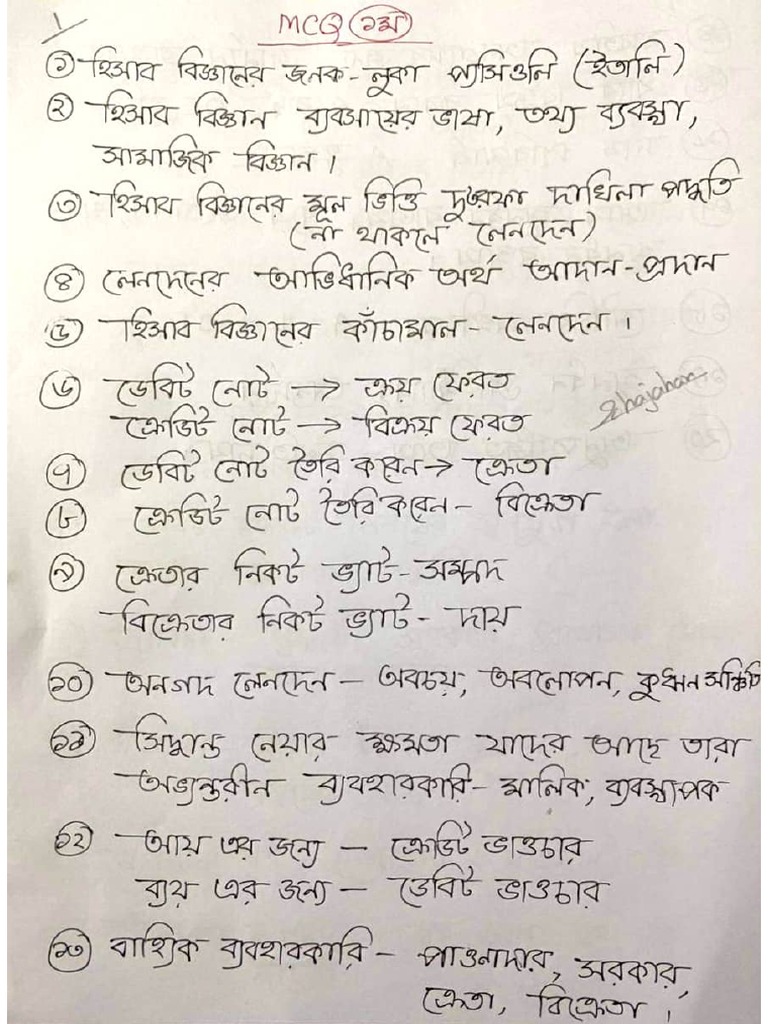 MCQ ১ম
১ হিসাব বিজ্ঞানের জনক - লুকা প্যাসিওলি (ইতালি)
২ হিসাব বিজ্ঞান ব্যবসায়ের ভাষা, তথ্য ব্যবস্থা,
সামাজিক বিজ্ঞান।
৩ হিসাব বিজ্ঞানের মূল ভিত্তি দুতরফা দাখিলা পদ্ধতি
(না থাকলে লেনদেন)
৪ লেনদেনের আভিধানিক অর্থ আদান-প্রদান
হিসাব বিজ্ঞানের কাঁচামাল - লেনদেন।
৬ ডেবিট নোট → ক্রয় ফেরত
ক্রেডিট নোট → বিক্রয় ফেরত
Shajahan
৭ ডেবিট নোট তৈরি করেন → ক্রেতা
৮ ক্রেডিট নোট তৈরি করেন - বিক্রেতা
৯ ক্রেতার নিকট ভ্যাট - সম্পদ
বিক্রেতার নিকট ভ্যাট - দায়
১০ অনগদ লেনদেন - অবচয়, অবলোপন, কুঋন সঞ্চিতি
১১ সিদ্ধান্ত নেয়ার ক্ষমতা যাদের আছে তারা
অভ্যন্তরীন ব্যবহারকারি - মালিক, ব্যবস্থাপক
১২ আয় এর জন্য - ক্রেডিট ভাওচার
ব্যয় এর জন্য - ডেবিট ভাওচার
১৩ বাহ্যিক ব্যবহারকারি - পাওনাদার, সরকার,
ক্রেতা, বিক্রেতা।